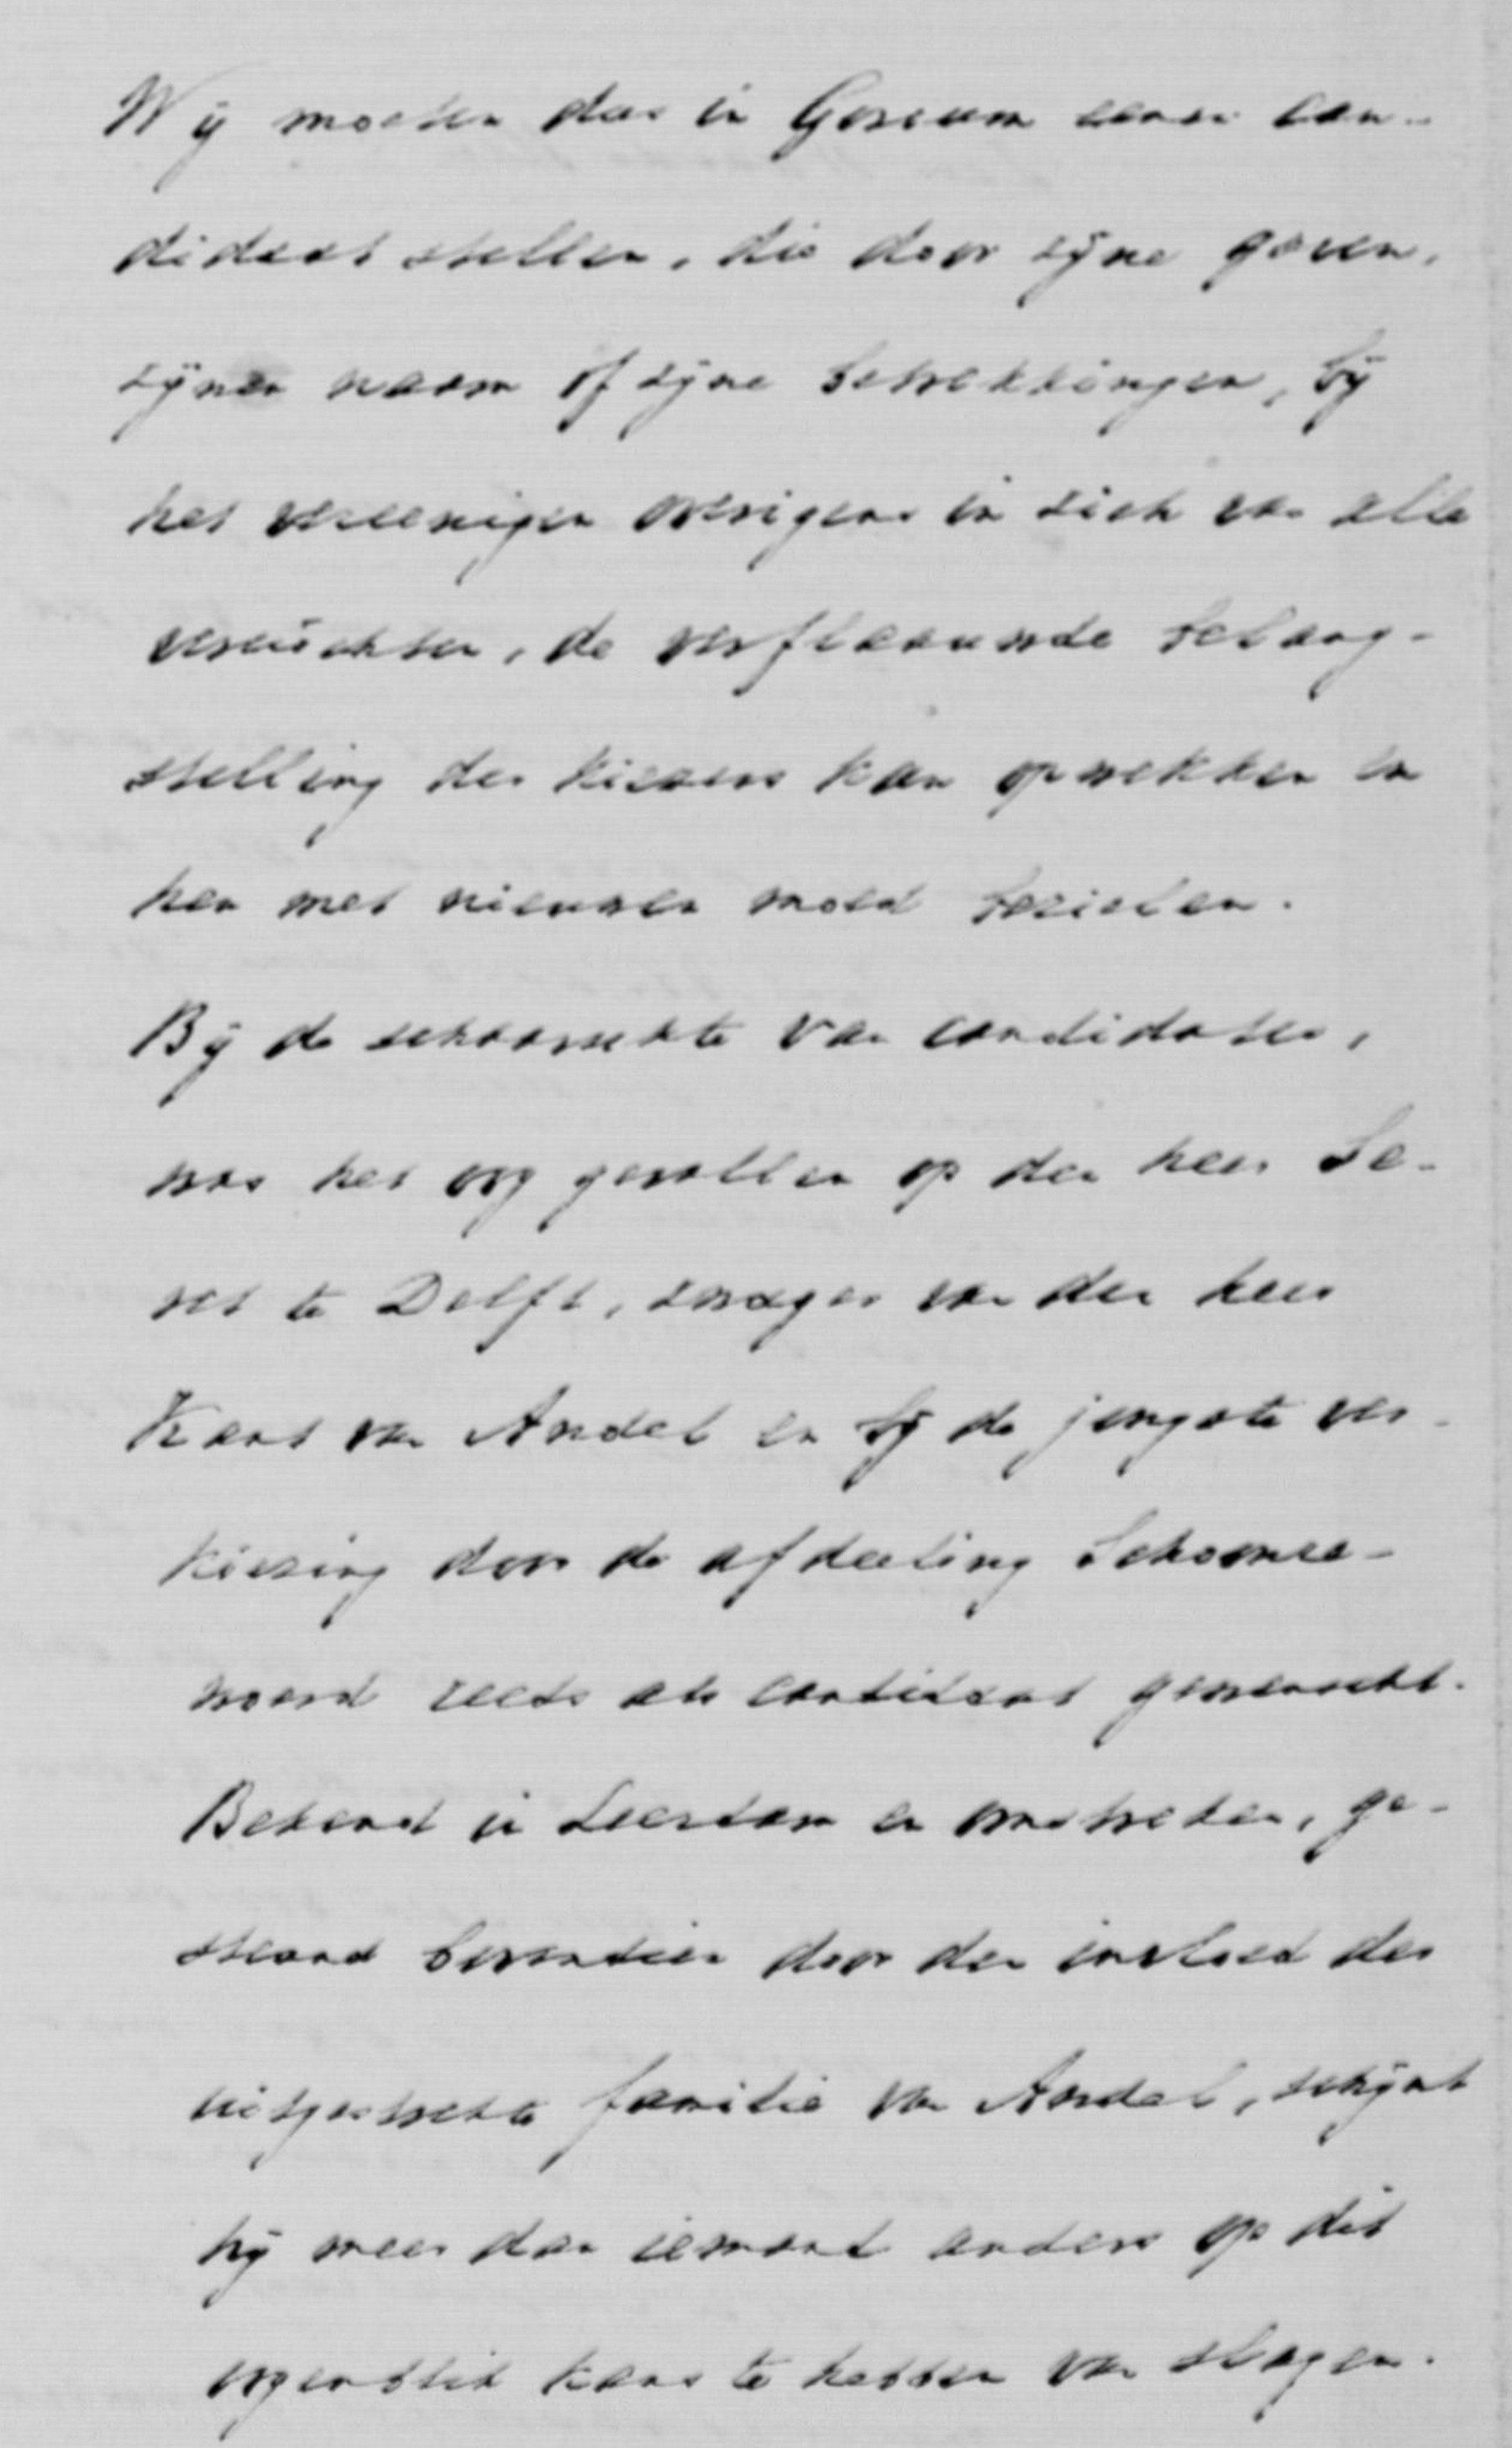 Wij moeten dus in Gorcum eenen can-
didaat stellen, die door zijne gaven,
zijnen naam of zijne betrekkingen, bij
het vereenigen overigens in zich van alle
vereischten, de verflaauwde belang-
stelling der kiezers kan opwekken en
hen met nieuwen moed bezielen.
Bij de schaarschte van candidaten,
was het oog gevallen op den heer Se-
ret te Delft, zwager van den heer
Kars van Andel en bij de jongste ver-
kiezing door de afdeeling Schoonre-
woerd reeds als candidaat gewenscht.
Bekend in Leerdam en omstreken, ge-
steund bovendien door den invloed der
uitgestrekte familie van Andel, schijnt
hij meer dan iemand anders op dit
oogenblik kans te hebben van slagen.